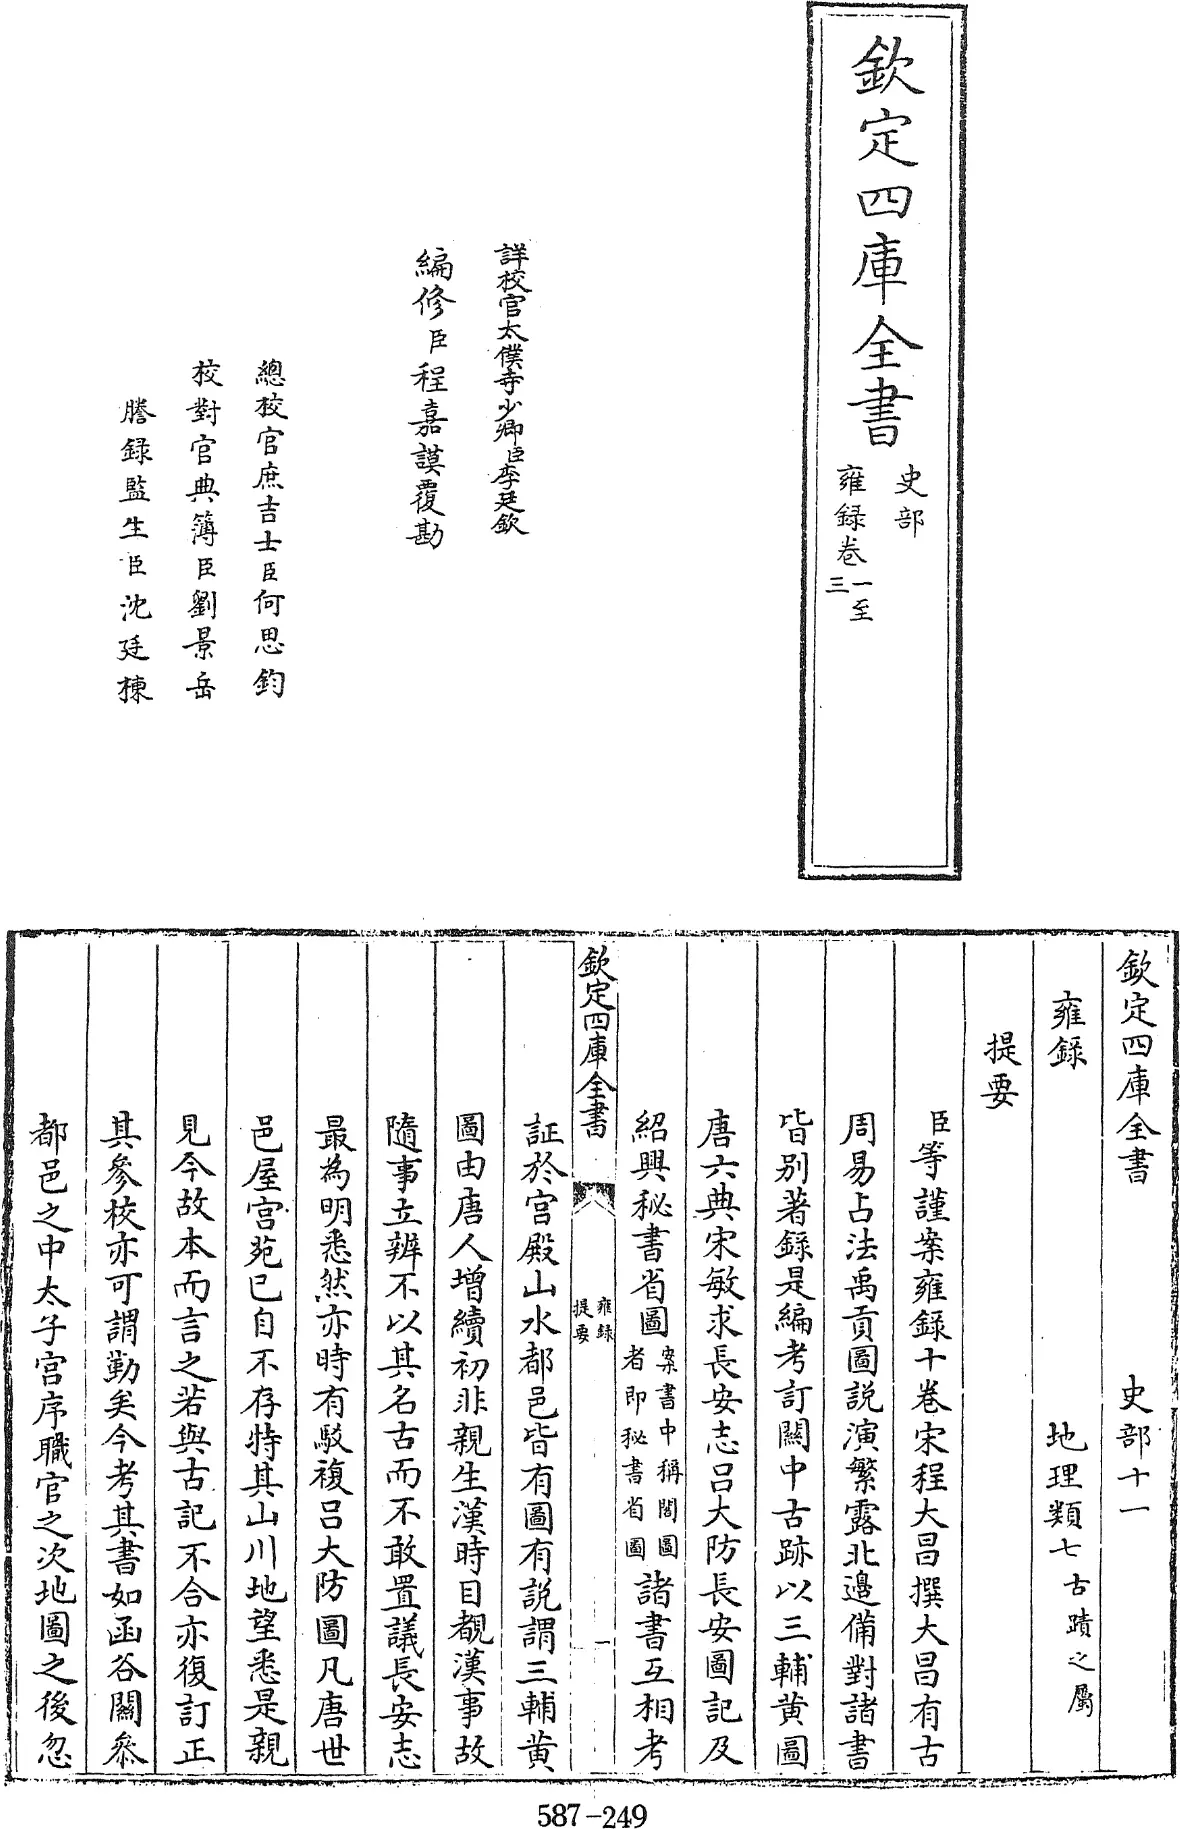 欽定四庫全書
史部
雍録卷一至
三
詳校官太僕寺少卿臣李廷欽
編修臣程嘉謨覆勘
總校官庶吉士臣何思鈞
校對官典簿臣劉景岳
謄録監生臣沈廷棟
欽定四庫全書 史部十一
雍録 地理類七古蹟之屬
提要
臣等謹案雍録十卷宋程大昌撰大昌有古
周易占法禹貢圖説演繁露北邊備對諸書
皆别著録是編考訂闗中古跡以三輔黄圖
唐六典宋敏求長安志吕大防長安圖記及
紹興秘書省圖案書中稱閣圖者即秘書省圖諸書互相考
欽定四庫全書 雍録提要 一
証於宫殿山水都邑皆有圖有説謂三輔黄
圖由唐人增續初非親生漢時目覩漢事故
隨事立辨不以其名古而不敢置議長安志
最為明悉然亦時有駁複吕大防圖凡唐世
邑屋宫苑已自不存特其山川地望悉是親
見今故本而言之若與古記不合亦復訂正
其參校亦可謂勤矣今考其書如函谷關叅
都邑之中太子宫序職官之次地圖之後忽
587-249